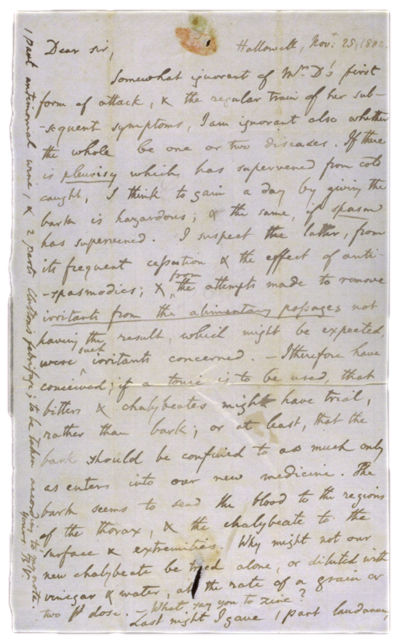 Hallowell, Nov. 25, 180
Dear Sir,
Somewhat ignorant of Mrs. D's first
form of attack, & the regular train of her sub-
sequent symptoms, I am ignorant also whether
the whole be one or two diseases. If there
is pleurisy which has supervened from cold
caught, I think to gain a day by giving the
bark is hazardous; & the same, if spasm
has supervened. I suspect the latter, from
its frequent cessation & the effect of anti-
-spasmodics; & from the attempts made to remove
irritants from the alimentary passages not
having the result, which might be expected
were such irritants concerned. - I therefore have
conceived; if a tonic is to be used, that
bitters & chalybeates might have trial,
rather than bark; or at least, that the
bark should be confined to as much only
as enters into our new medicine. The
bark seems to send the blood to the regions
of the thorax, & the chalybeate to the
surface & extremities. Why might not our
new chalybeate be tried alone, or diluted with
vinegar & water, at the rate of a grain or
two pr dose. - What say you to zinc?
Last night I gave 1 part laudanum,
1 part antimonial wine, & 2 parts febrifuge; to be taken according to
Yours